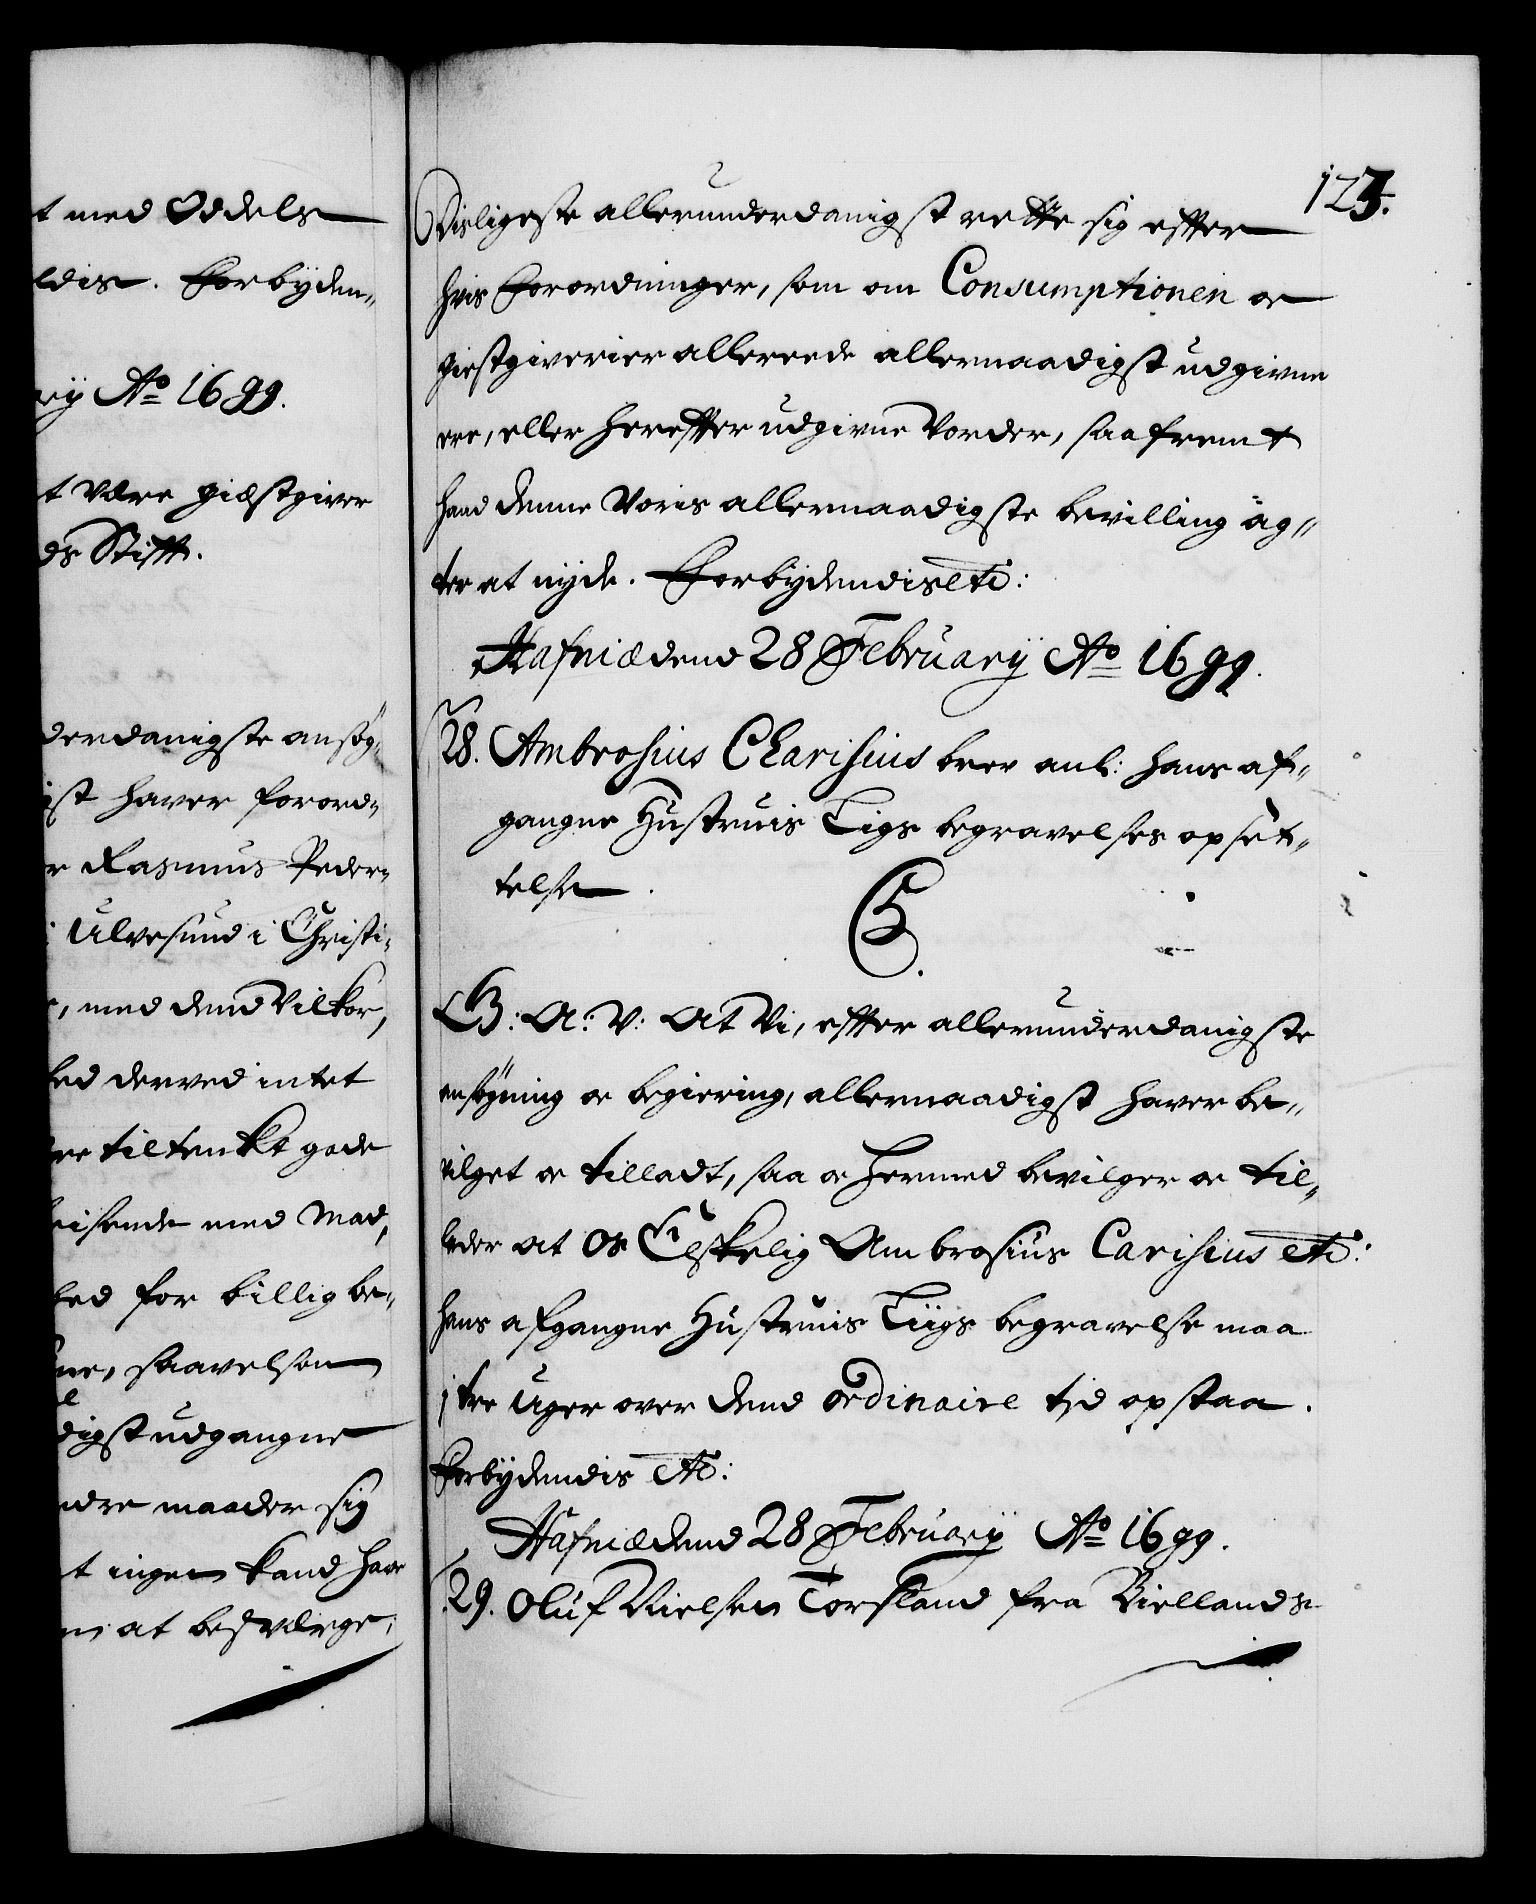 t med Oddels
ldis. Forbyden-
ry Ao 1699.
t være giæstgiver
ds Stifft.
derdanigste ansøg-
ist haver forord-
r Rasmus Peder-
i Ulvesund i Christi-
, med dend Vilkor,
ed derved intet
re tiltenkt gode
eisende med Mad,
ed for billig be-
ne, saavelsom
digst udgangne
ndre maader sig
t ingen kand have
at besværge;
123.
Visligeste allerunderdanigst rette sig effter
hvis Forordninger, som om Consumptionen oc
giestgiverier allereede allernaadigst udgivne
ere, eller hereffter udgivne Vorder, saafremt
hand denne Voris allernaadigste bevilling ag-
ter at nyde. Forbydendis etc:
Hafniæ dend 28 February Ao 1699.
28. Ambrosius Charisius brev anl: hans af-
gangne Hustruis Ligs begravelses opset-
telse.
C5.
G: A: V: At Vi, effter allerunderdanigste
ansøgning oc begiering, allernaadigst haver be-
vilget oc tilladt, saa oc hermed bevilger oc til-
lader at Os Elskelig Ambrosius Carisius etc:
hans afgangne Hustruis Liigs begravelse maa
j tre Uger over dend ordinaire tjd opstaa.
Forbydendis etc:
Hafniæ dend 28 February Ao 1699.
29. Oluf Nielsen Torsland fra Biellands